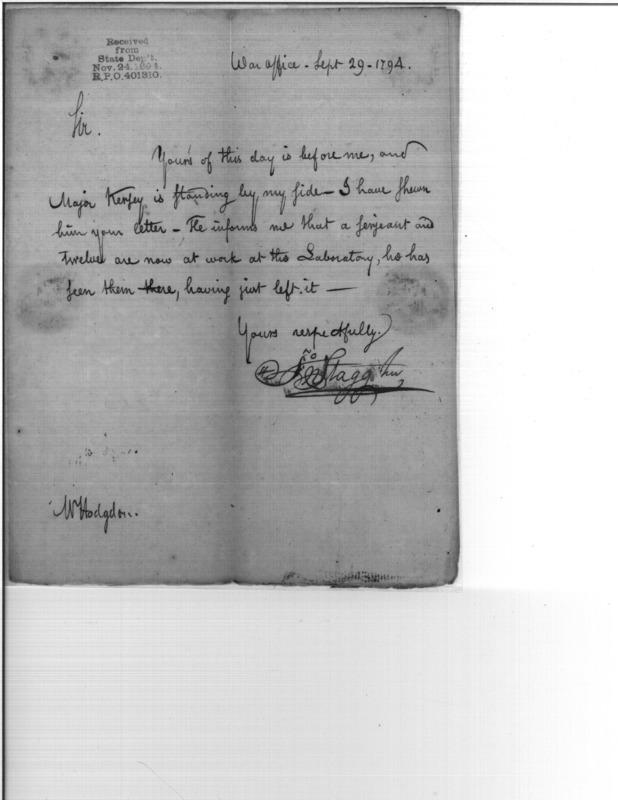 Received
from
State Dep't.
Nov. 24. 1894.
R.P.O. 401310.
War office - Sept 29 - 1794.
Sir.
Yours of this day is before me, and
Major Kersey is standing by my side - I have shewn
him your letter - He informs me that a serjeant and
twelve are now at work at the Laboratory, he has
seen them there, having just left it -
Yours respectfully
Jno Stagg Junr
Mr Hodgdon.